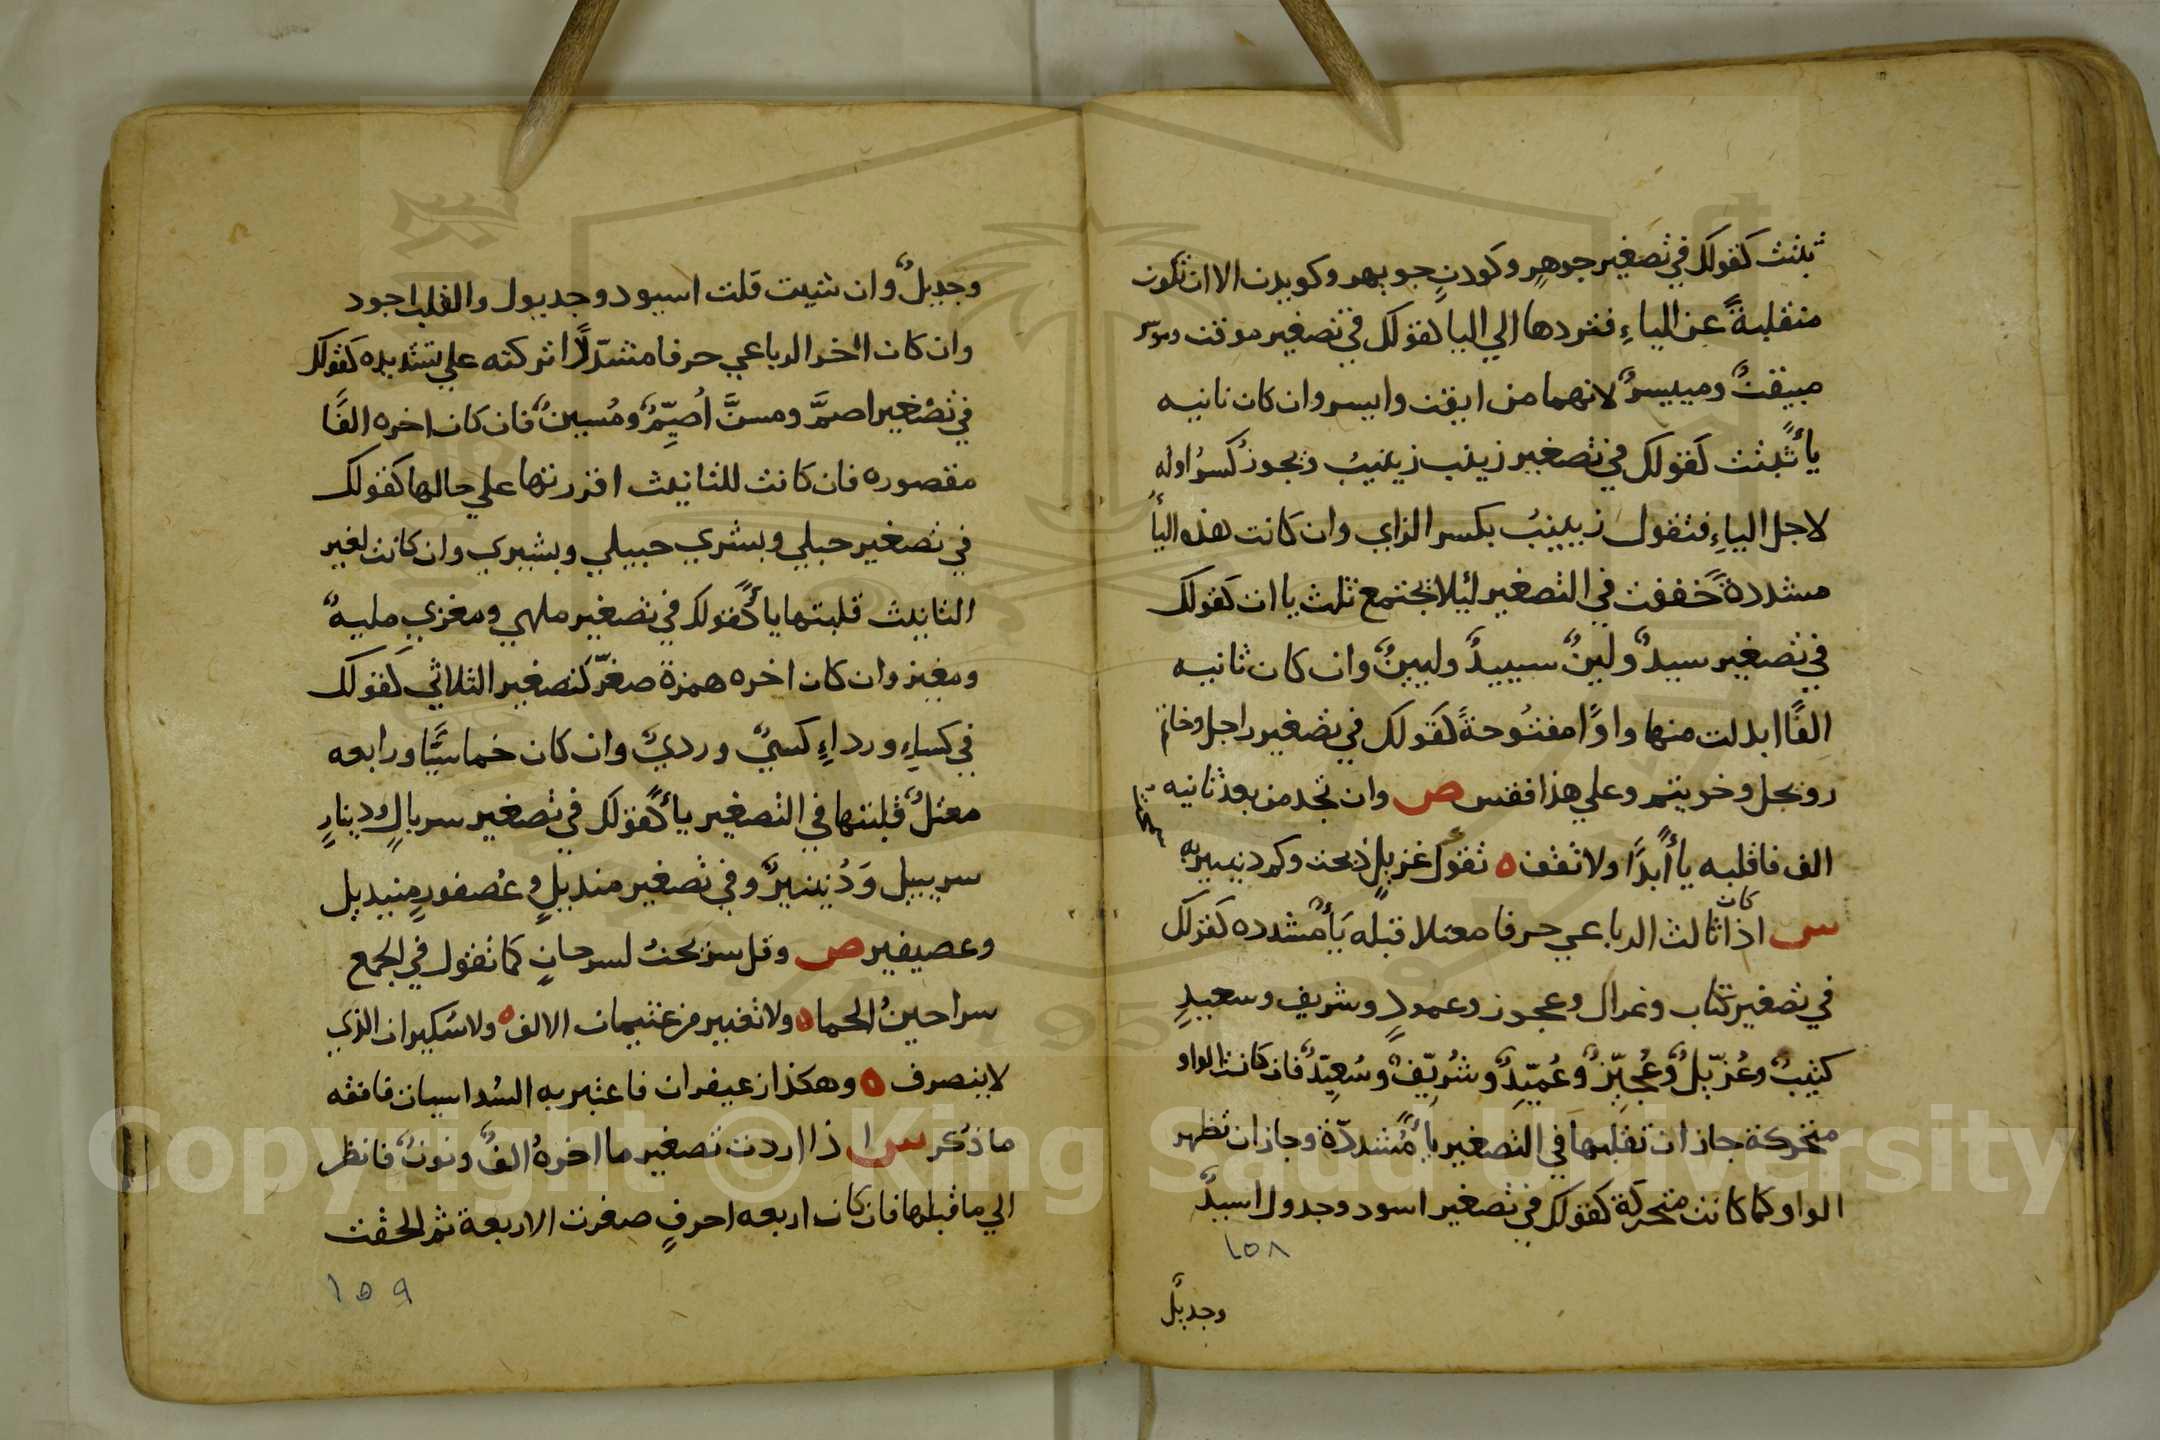 تبثت كقولك في تصغير جوهرٍ وكودنٍ جويهر وكويدن الا ان تكون
منقلبةً عن الياءِ فتردها الي اليا كقولك في تصغير موقن وموسر
مييقنٌ ومييسرٌ لانهما من ايقن وايسر وان كان ثانيه
يأً ثبتت كقولك في تصغير زينب زيينبُ ويجوز كسرُ اوله
لاجل الياءِ فتقول زيينبُ بكسر الزاي وان كانت هذه اليأُ
مشددةً خففت في التصغير ليلا تجتمع ثلث ياات كقولك
في تصغير سيدٌ ولينٌ سييدٌ ولييِنٌ وان كان ثانيه
الفًا ابدلت منها واوًا مفتُوحةً كقَولك في تصغير راجل وخاتم
رويجل وخويتم وعلي هذا فقس ص وان تجد من بعد ثانيه
الف فاقلبه يأً أبدًا ولا تقف ه تقول غزيلٍ ذبحت وكم دنينير به
سمحت
س اذا كان ثالث الرباعي حرفا معتلا قبله يَأً مشدده كقولك
في تصغير كتاب وغزال وعجوز وعمودٍ وشريف وسعيدٍ
كتيبٌ وغُزيّلٌ وعُجيّزٌ وعُميّدٌ وشُريّفٌ وسُعيّدٌ فان كانت الواو
متحركة جاز ان تقلبها في التصغير يأً مُشددّة وجاز ان تظهر
الواو كما كانت متحركة كقولك في تصغير اسود وجدول اسيدٌ
١٥٨
وجديلٌ
وجديلٌ وان شيت قلت اسيود وجديول والقلب اجود
وان كان اخر الرباعي حرفا مشدّدًا تركته علي تشديده كقولك
في تصْغير اصمَّ ومسنَّ اُصيِّمٌ ومُسينٌ فان كان اخره الفًا
مقصوره فان كانت للتانيث اقررتها علي حالها كقولك
في تصغير حبلي وبشري حبيلي وبشيري وان كانت لغير
التانيث قلبتها يأً كقولك في تصغير ملهي ومغزي مليهٌ
ومغيز وان كان اخره همزة صغرّ كتصغير الثلاثي كقولك
في كساءٍ ورداءٍ كسيٌ ورديٌ وان كان خماسيًّا ورابعه
معتلٌ قلبتها في التصغير يأً كقولك في تصغير سربالٍ ودينارٍ
سريبيل وَدُنينيرٌ وفي تصغير منديلٍ وعُصفورٍ منيديل
وعصيفير ص وقل سريحينُ لسرحانٍ كما تقول في الجمع
سراحينُ الحما ه ولا تغيير من عثيمان الالف ه ولا سكيران الذي
لا ينصرف ه وهكذا زعيفران فاعتبر به السُداسيات فافقه
ما ذُكر س اذا اردت تصغير ما اخرهُ الفٌ ونونٌ فانظر
الي ما قبلها فان كان اربعه احرفٍ صغرت الاربعة ثم الحقت
١٥٩
Copyright © King Saud University